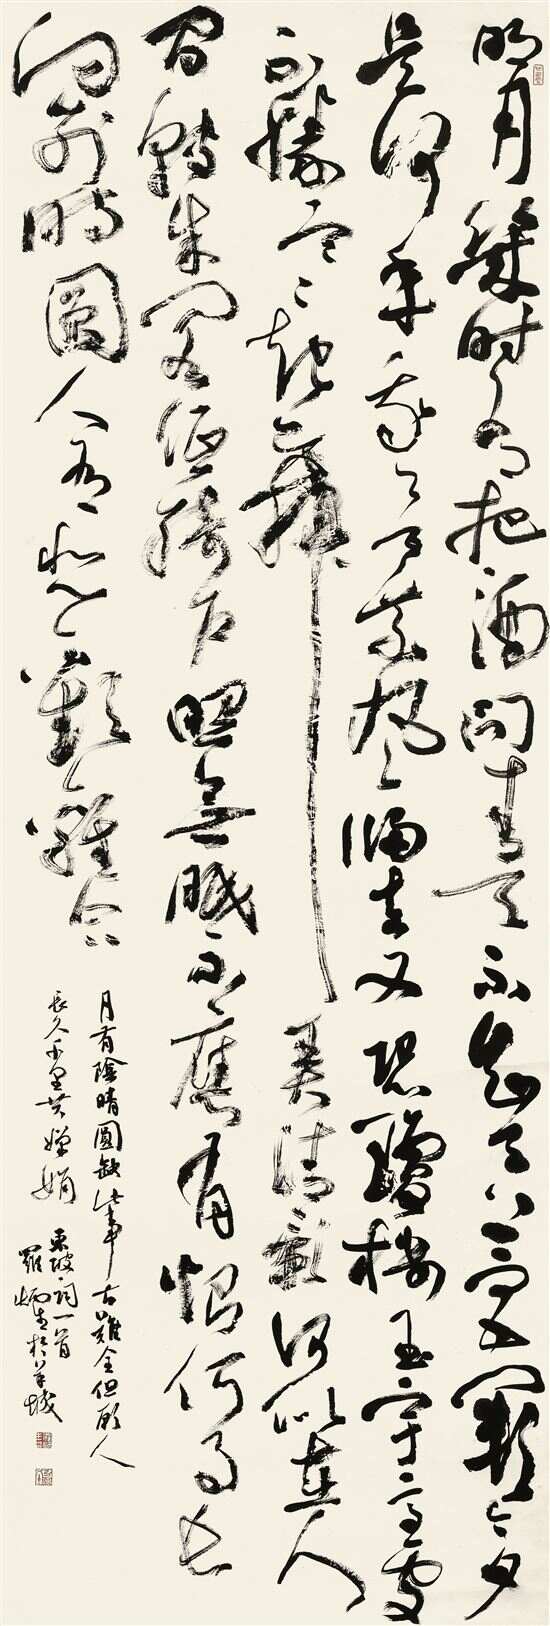 明月幾時有把酒問青天不知天上宮闕今夕
是何年我欲乘風歸去又恐瓊樓玉宇高處
不勝寒起舞弄清影何似在人
間轉朱閣低綺戶照無眠不應有恨何事長
向別時圓人有悲歡離合
月有陰晴圓缺此事古難全但願人
長久千里共嬋娟
東坡詞一首
羅炳生於羊城